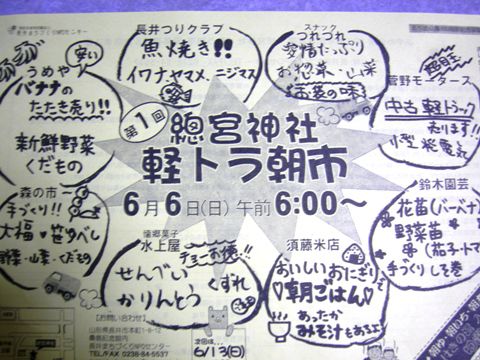 長井つりクラブ
魚焼き!!
イワナ、ヤマメ、ニジマス
スナック
つれづれ
愛情たっぷり
お惣菜・山菜
お袋の味!
うめや
安い
バナナの
たたき売り!!
新鮮野菜
くだもの
菅野モータース
中古軽トラック
売ります!!
小型発電気
第1回
總宮神社
軽トラ朝市
6月6日(日) 午前6:00〜
森の市
手づくり!!
大福・笹ゆべし
・山菜・くだもの
鈴木園芸
花苗(バーベナ)
野菜苗
(茄子・トマ
手づくりしそ巻
水上屋
チョー お徳!!
せんべい
くずれ
かりんとう
須藤米店
おいしいおにぎりで
♡朝ごはん♡
あったか
みそ汁もあるよ
【お問い合わせ】
山形県長井市本町1-8-12
長井まちづくりNPOセンター
TEL/FAX 0238-84-5537
次回は…
6/13(日)